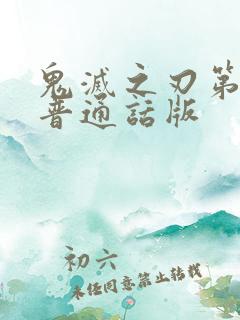 鬼滅之刃第
普通話版
初六
未经同意禁止转载